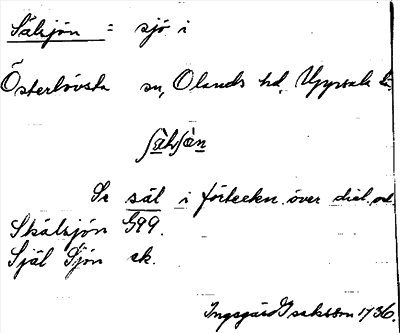 Sälsjön = sjö i
Österlövsta sn, Olands hd, Uppsala l.
Se säl i förteckn. över dial. ord.
Skälsjön G99.
Själ Sjön ek.
Ingegärd Isaksson 1936.